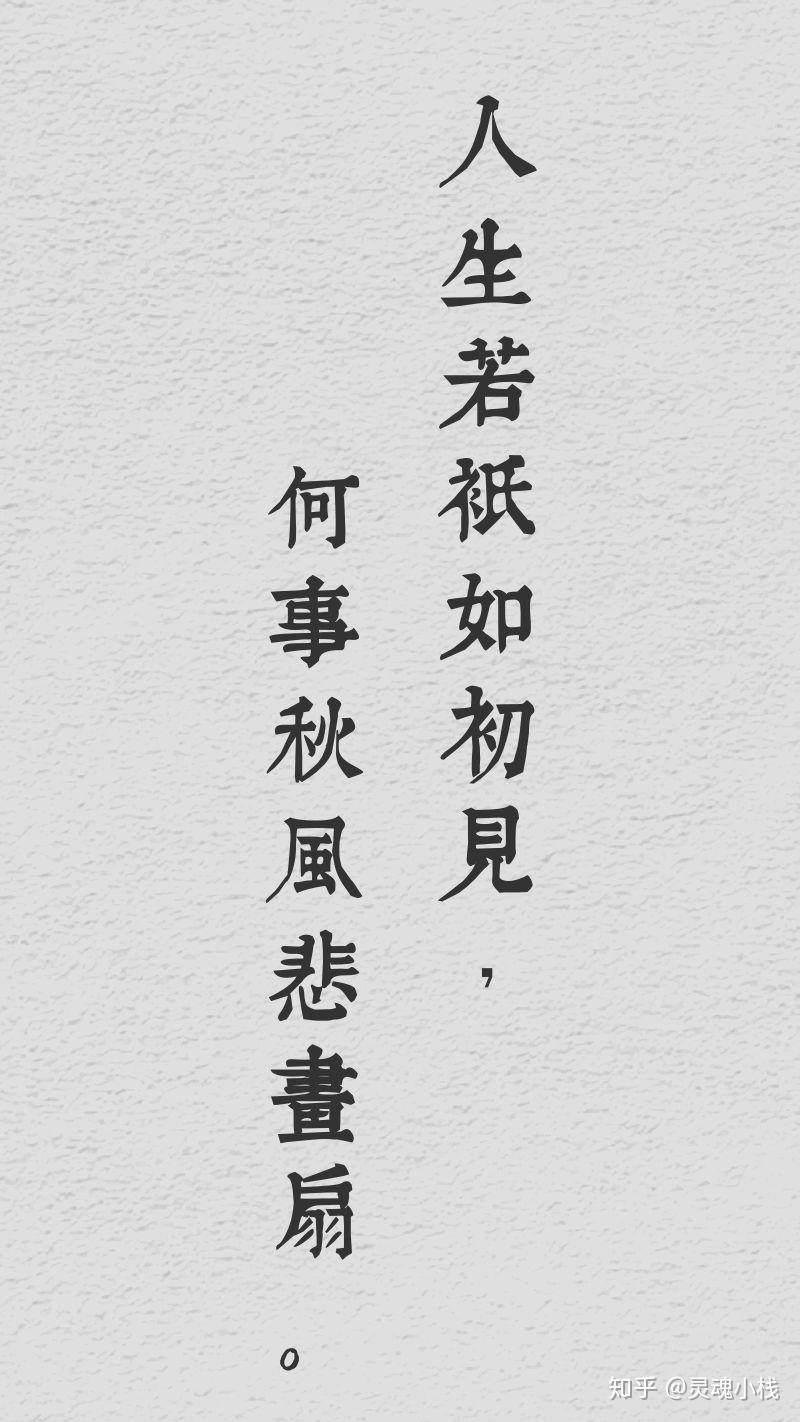 人生若祇如初見，
何事秋風悲畫扇。
知乎 @灵魂小栈